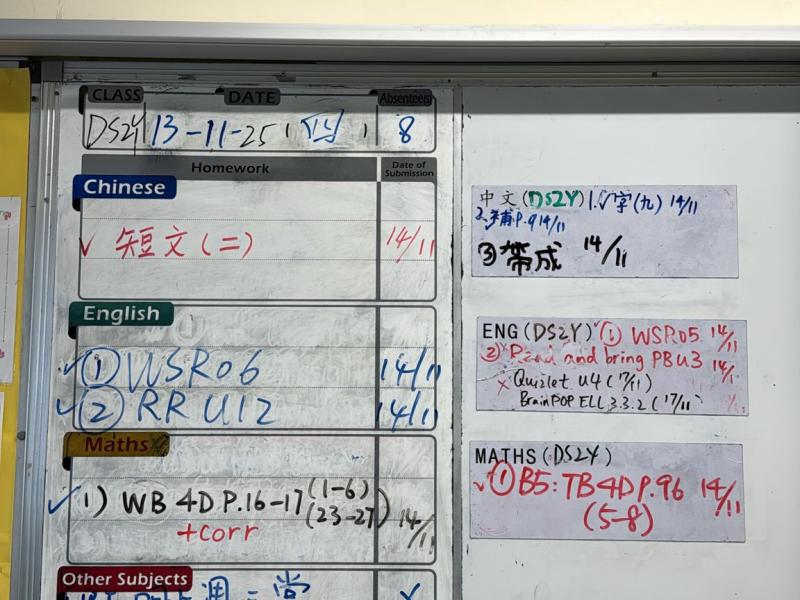 CLASS DATE Absentees
DS2Y 13-11-25 (四) 8
Homework Date of Submission
Chinese
✓ 短文(二) 14/11
English
✓ ① WSR06 14/11
✓ ② RRU12 14/11
Maths
✓ 1) WB 4D P.16-17 (1-6) (23-27) 14/11
+corr
Other Subjects
中文(DS2Y) 1. 字(九) 14/11
2. P.9 14/11
③ 帶成 14/11
ENG (DS2Y) ① WSR05 14/11
② Read and bring PBU3 14/1
× Quizlet U4 (17/11)
BrainPOP ELL 3.3.2 (17/11)
MATHS (DS2Y)
✓ ① B5: TB4DP.96 14/11
(5-8)